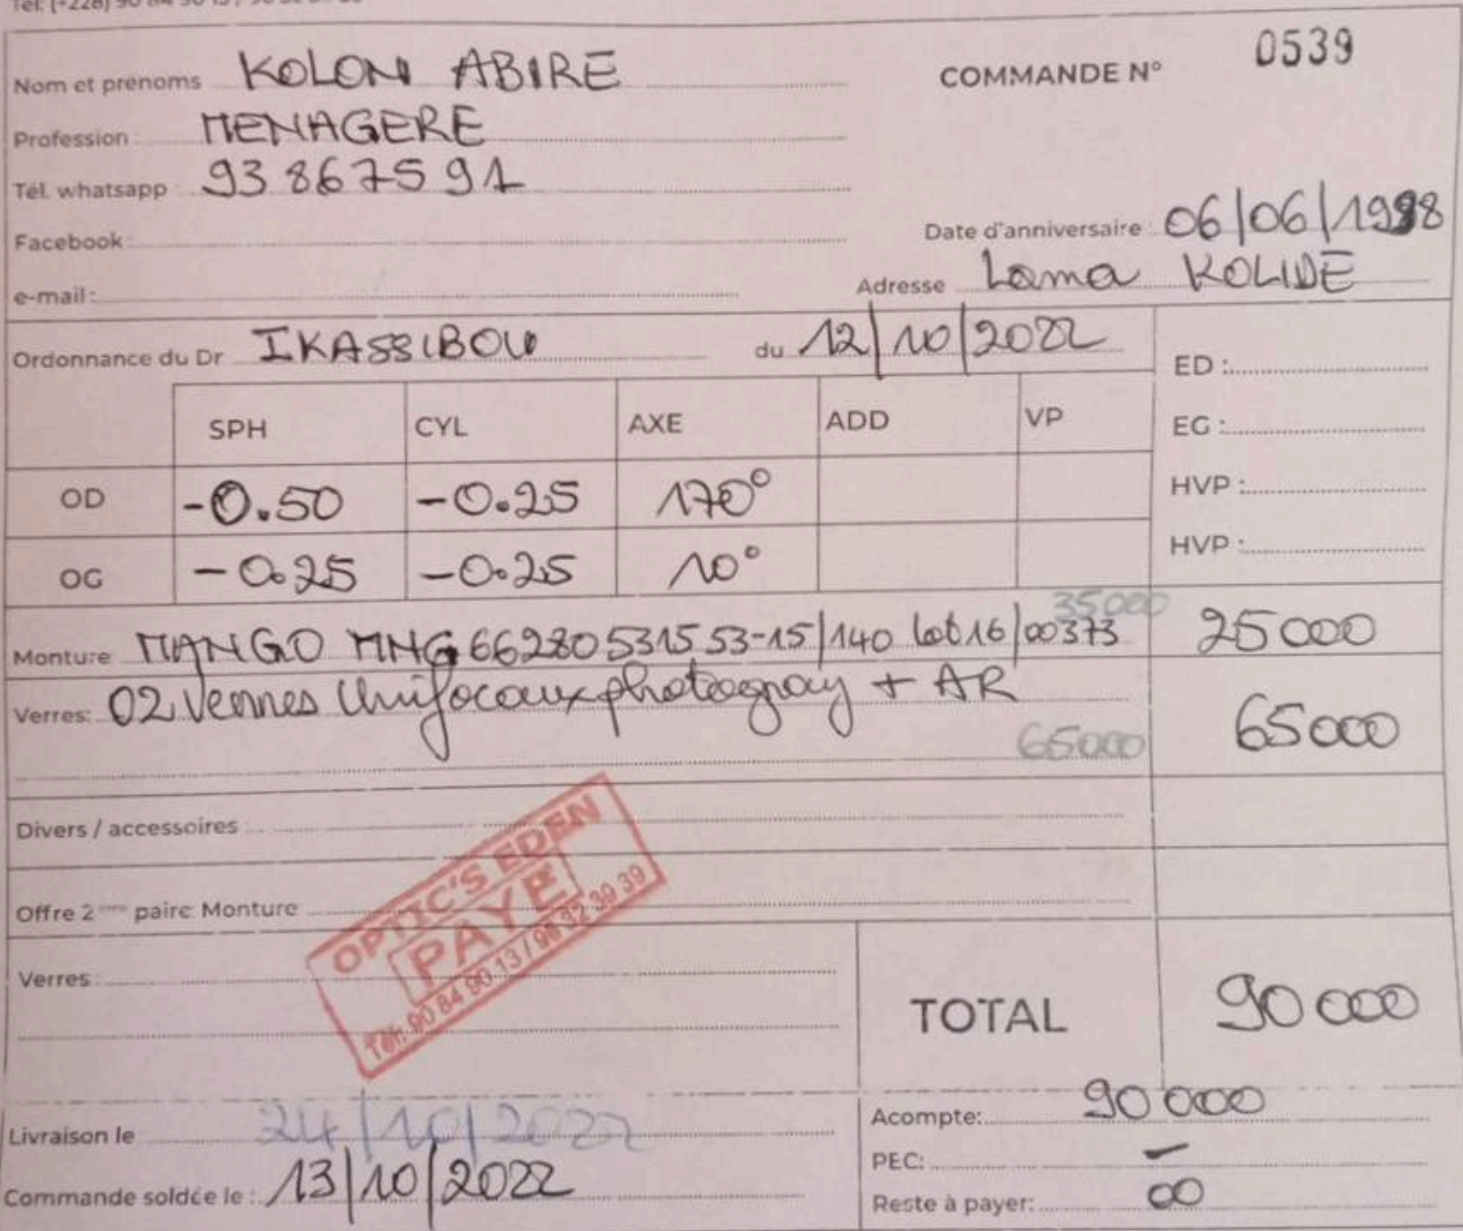 Tél: (+228) 90 84 90 13 /
Nom et prénoms KOLON ABIRE
COMMANDE N° 0539
Profession : MENAGERE
Tél. whatsapp 93 86 75 91
Facebook :
Date d'anniversaire : 06/06/1998
e-mail :
Adresse Lama KOLIDE
Ordonnance du Dr IKASSIBOU du 12/10/2022
ED :
SPH CYL AXE ADD VP
EG :
OD -0.50 -0.25 170°
HVP :
OG -0.25 -0.25 10°
HVP :
35000
Monture MANGO MNG 66280531553-15/140 lot 16/00373 25000
Verres: 02 Verres Unifocaux photogray + AR
65000 65000
Divers / accessoires
Offre 2ème paire: Monture
OPTIC'S EDEN
PAYE
Tél: 90 84 90 13 / 98 32 39 39
Verres :
TOTAL 90 000
Livraison le 24/10/2022
Acompte: 90 000
PEC: —
Commande soldée le : 13/10/2022
Reste à payer: 00